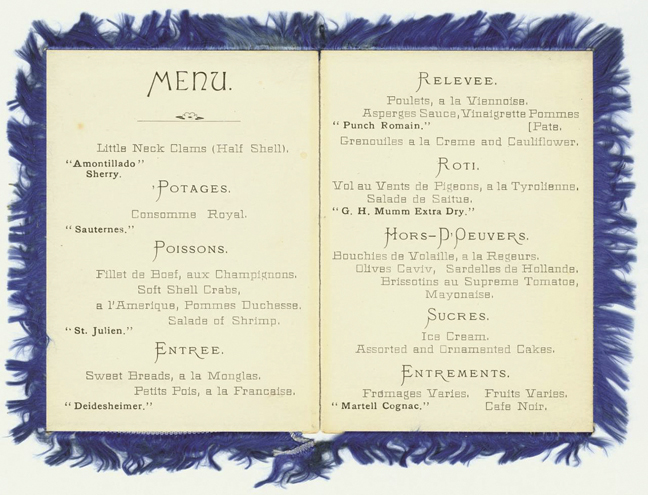 MENU.
Little Neck Clams (Half Shell).
"Amontillado"
Sherry.
'POTAGES.
Consomme Royal.
"Sauternes."
POISSONS.
Fillet de Boef, aux Champignons.
Soft Shell Crabs,
a l'Amerique, Pommes Duchesse.
Salade of Shrimp.
"St. Julien."
ENTREE.
Sweet Breads, a la Monglas.
Petits Pois, a la Francaise.
"Deidesheimer."
RELEVEE.
Poulets, a la Viennoise.
Asperges Sauce, Vinaigrette Pommes
"Punch Romain." [Pate.
Grenouiles a la Creme and Cauliflower.
ROTI.
Vol au Vents de Pigeons, a la Tyrolienne.
Salade de Saitue.
"G. H. Mumm Extra Dry."
HORS-D'OEUVERS.
Bouchies de Volaille, a la Regeurs.
Olives Caviv, Sardelles de Hollande.
Brissotins au Supreme Tomatoe,
Mayonaise.
SUCRES.
Ice Cream.
Assorted and Ornamented Cakes.
ENTREMENTS.
Fromages Varies. Fruits Varies.
"Martell Cognac." Cafe Noir.